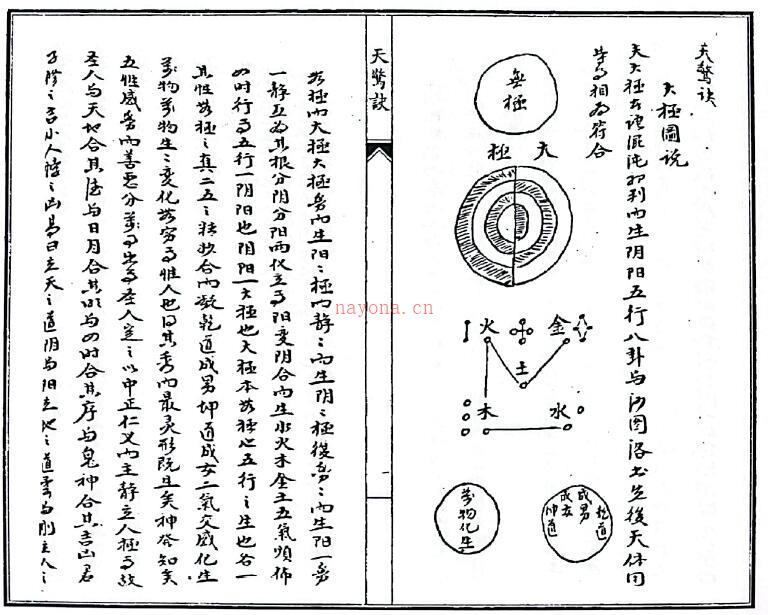 天驚诀
大極圖说
夫大極者谓混沌初判而生阴阳五行八卦与河图洛书先後天体用
皆可相为符合
無極
大極
火 金
土
木 水
乾道成男
坤道成女
萬物化生
天驚訣
無極而大極大極動而生阳〻極而静〻而生阴〻極後動〻而生阳一動
一静互为其根分阴分阳两仪立焉阳变阴合而生水火木金土五氣順佈
四时行焉五行一阴阳也阴阳一大極也大極本無極也五行之生也各一
其性無極之真二五之精妙合而凝乾道成男坤道成女二氣交感化生
萬物萬物生〻变化無穷焉惟人也得其秀而最灵形既生矣神發知矣
五性感動而善恶分萬事出焉圣人定之以中正仁义而主静立人極焉故
圣人与天地合其德与日月合其明与四时合其序与鬼神合其吉凶君
子修之吉小人之凶易曰立天之道阴与阳立地之道柔与刚立人之
nayona.cn